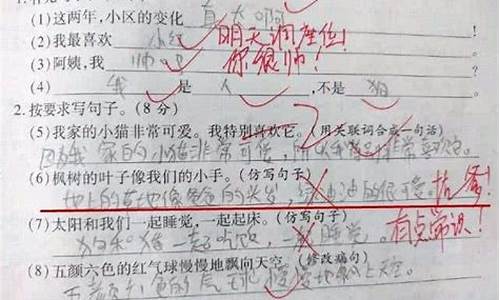 (1)这两年,小区的变化 真大啊
(2)我最喜欢 小红 明天调座位!
(3)阿姨,我 帅吧 你很帅!
(4) 我 是 人 ,不是 狗
2.按要求写句子。(8 分)
(5)我家的小猫非常可爱。我特别喜欢它。(用关联词合成一句话)
因为我家的小猫非常可爱,所以我 非常喜欢它。
(6)枫树的叶子像我们的小手。(仿写句子)
地上的草地像爸爸的头发, 油油的很可爱。抗议!
(7)太阳和我们一起睡觉,一起起床。(仿写句子)
狗和猪一起吃饭,一 睡觉。 有点常识!
(8)五颜六色的红气球慢慢地飘向天空。(修改病句)
五颜六色的气球慢慢地飘上天空。